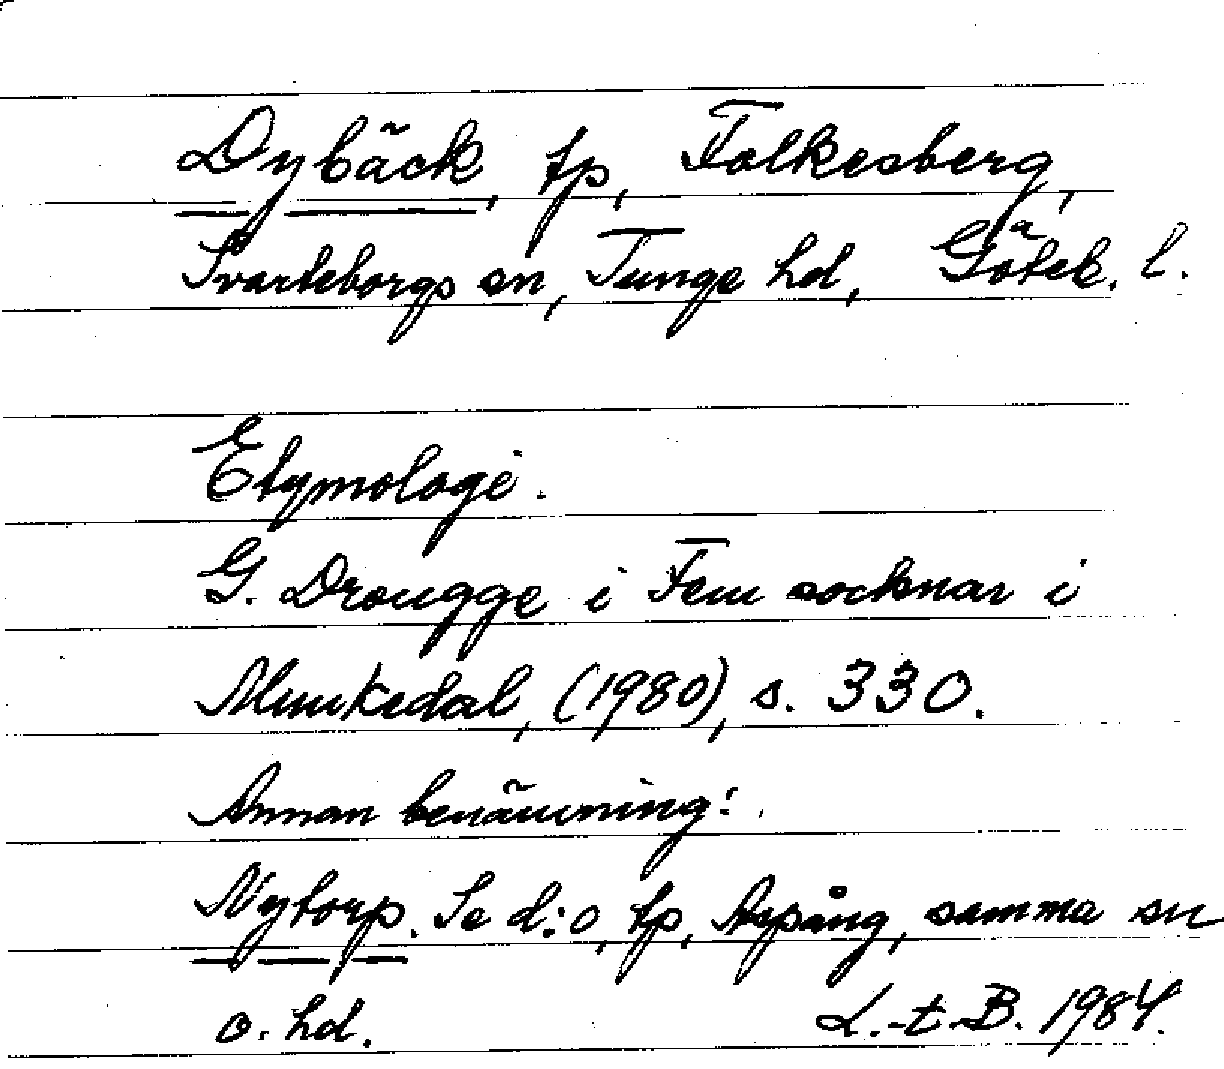 Dybäck, tp, Folkesberg,
Svarteborgs sn, Tunge hd, Göteb. l.
Etymologi.
G. Drougge i Fem socknar i
Munkedal, (1980), s. 330.
Annan benämning:
Nytorp. Se d:o, tp, Aspång, samma sn
o. hd. L.-t.-B. 1984.